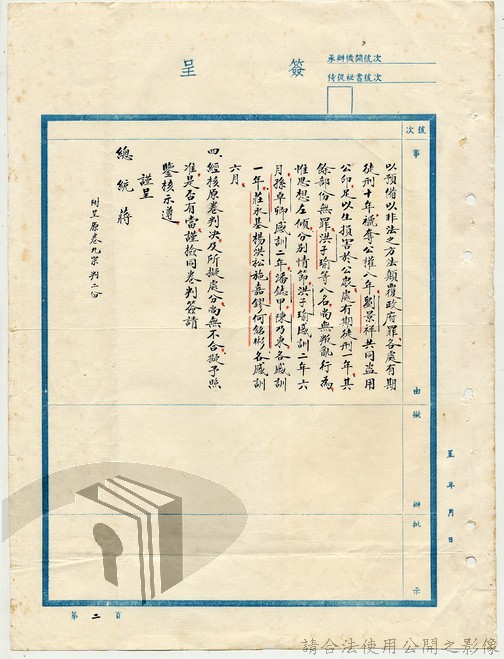 簽呈
承辦機關號次
侍從祕書號次
號次
事由擬辦批示
呈 年 月 日
以預備以非法之方法顛覆政府罪各處有期
徒刑十年褫奪公權八年劉景祥共同盜用
公印足以生損害於公眾處有期徒刑一年其
餘部份無罪洪子瑜等八名尚無叛亂行為
惟思想左傾分別情節洪子瑜感訓二年六
月孫卓卿感訓二年潘德甲陳乃東各感訓
一年莊永基楊洪松施嘉鏐何銘彬各感訓
六月
四、經核原卷判決及所擬處分尚無不合擬予照
准是否有當謹檢同卷判簽請
鑒核示遵
謹呈
總統蔣
附呈原卷九宗判二份
第二頁
請合法使用公開之影像